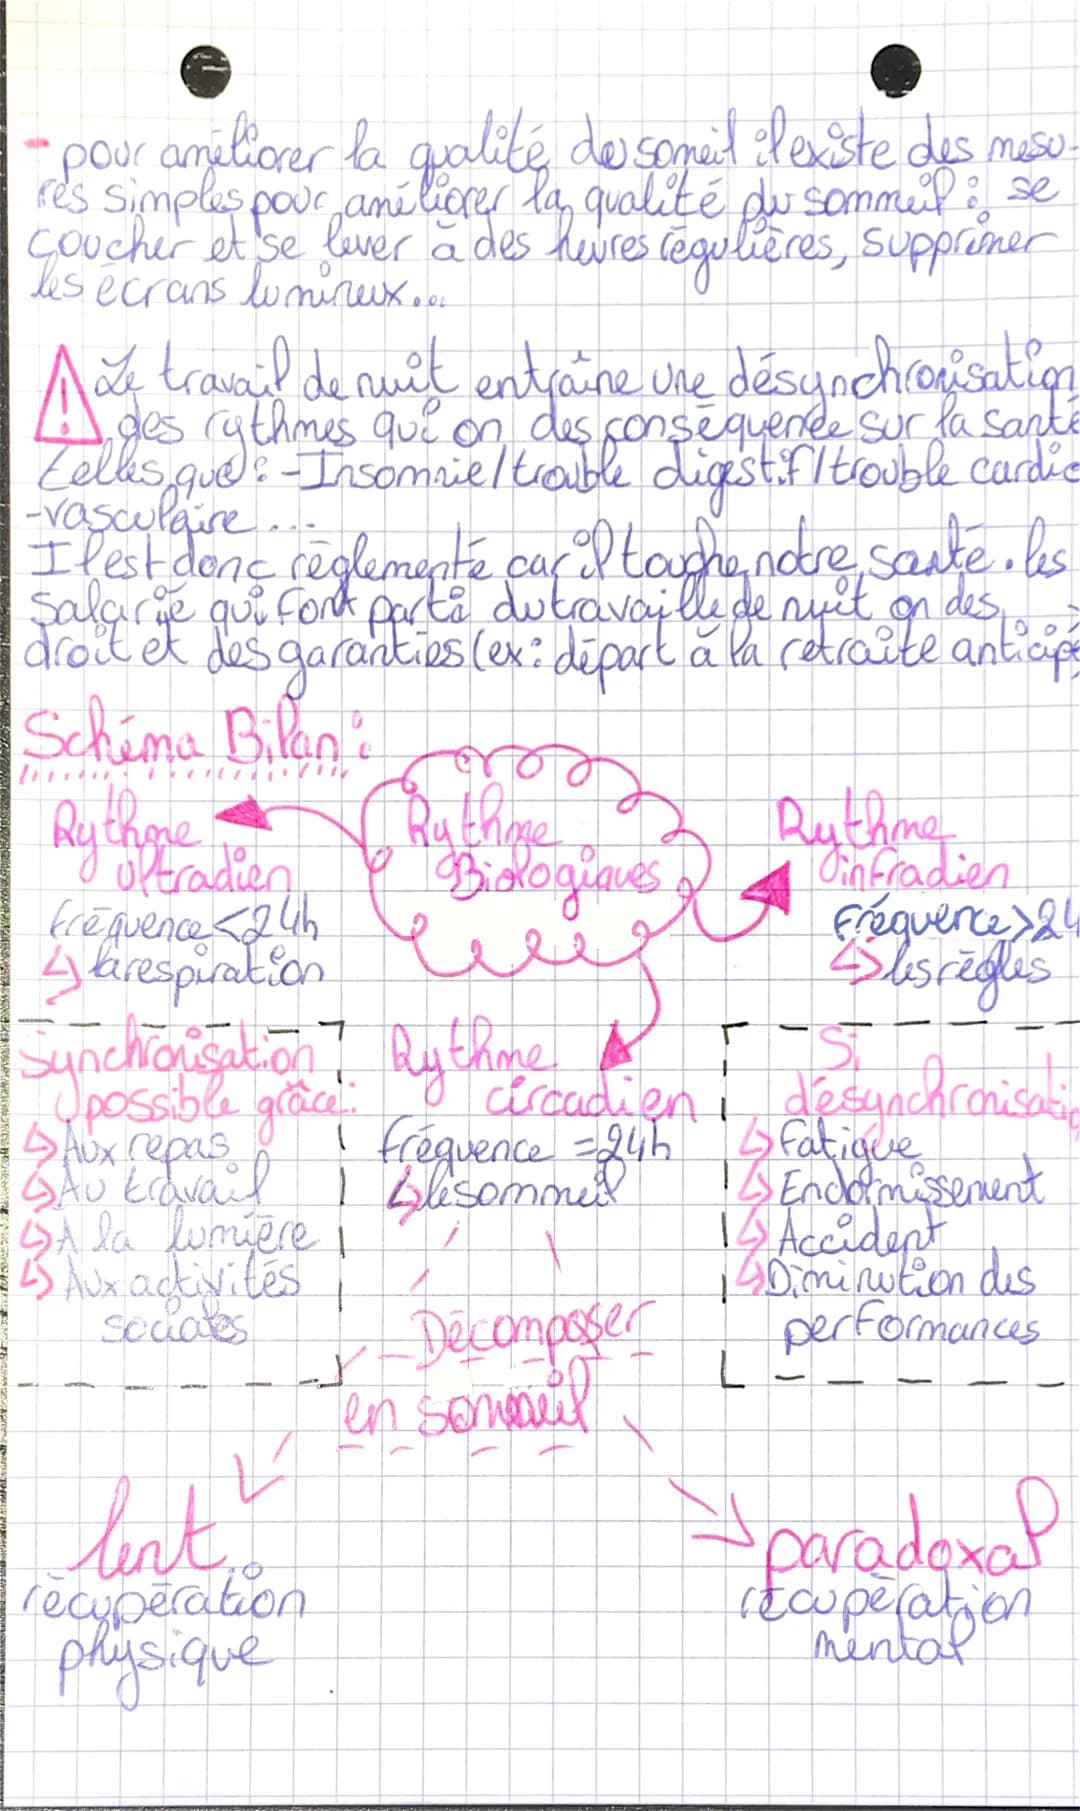 - pour améliorer la qualité de someil il existe des mesu-
res simples pour améliorer la qualité du sommeil : se
coucher et se lever à des heures régulières, supprimer
les écrans lumineux...
Le travail de nuit entraîne une désynchronisation
des rythmes qui on des conséquence sur la santé
telles que : - Insomnie / trouble digestif / trouble cardio
-vasculaire ...
Il est donc règlementé car il touche notre santé. les
Salarié qui font parti du travaille de nuit on des
droit et des garanties (ex : départ à la retraite anticipé
Schéma Bilan :
Rythme
Biologiques
Rythme
ultradien
fréquence < 24h
↳ la respiration
Rythme
infradien
Fréquence > 24
↳ les règles
Rythme
circadien
fréquence = 24h
↳ le sommeil
Synchronisation
possible grâce :
↳ Aux repas
↳ Au travail
↳ A la lumière
↳ Aux activités
sociales
Si
désynchronisatio
↳ Fatigue
↳ Endormissement
↳ Accident
↳ Diminution des
performances
Décomposer
en sommeil
lent
récupération
physique
paradoxal
récupération
mental